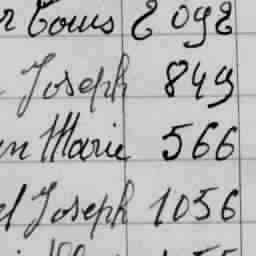 r Louis 2092
Joseph 849
en Marie 566
el Joseph 1056